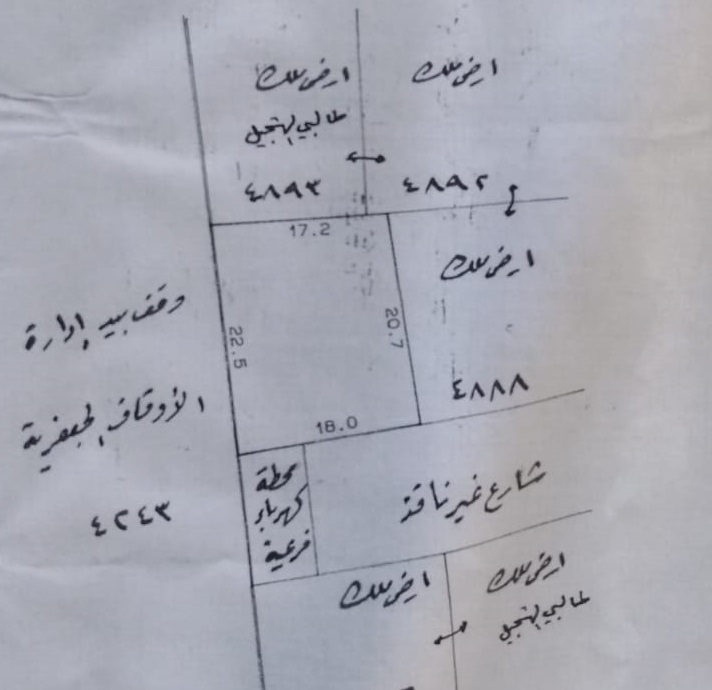 ارض ملك
ارض ملك
طالبي التسجيل
٤٨٩٢
٤٨٩٣
17.2
ارض ملك
22.5
20.7
وقف بيد إدارة
الأوقاف الجعفرية
٤٢٤٣
٤٨٨٨
18.0
محطة
كهرباء
فرعية
شارع غير نافذ
ارض ملك
ارض ملك
طالبي التسجيل